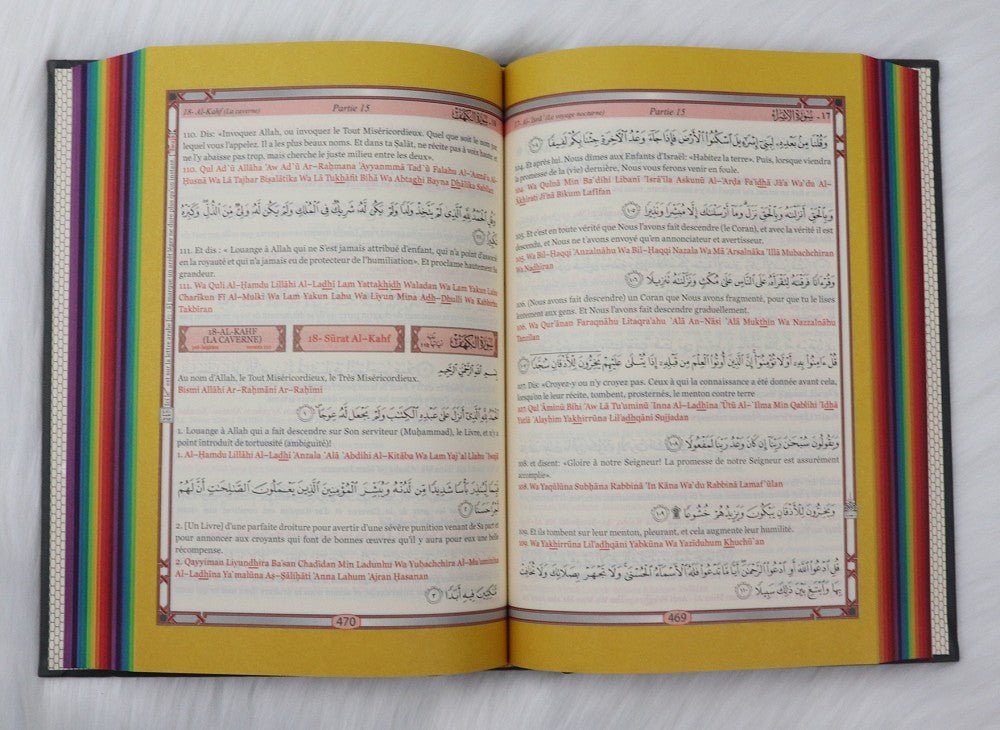 17- Al- Isrâ' (Le voyage nocturne) Partie 15 ١٧ - سورة الإسراء
وَقُلْنَا مِنْ بَعْدِهِ لِبَنِي إِسْرَائِيلَ اسْكُنُوا الْأَرْضَ فَإِذَا جَاءَ وَعْدُ الْآخِرَةِ جِئْنَا بِكُمْ لَفِيفًا ١٠٤
104. Et après lui. Nous dîmes aux Enfants d'Israël: «Habitez la terre». Puis, lorsque viendra
la promesse de la (vie) dernière, Nous vous ferons venir en foule.
104. Wa Qulnā Min Ba`dihi Libanī 'Isrā'īla Askunū Al-'Arđa Fa'idhā Jā'a Wa`du Al-
'Ākhirati Ji'nā Bikum Lafīfan
وَبِالْحَقِّ أَنْزَلْنَاهُ وَبِالْحَقِّ نَزَلَ وَمَا أَرْسَلْنَاكَ إِلَّا مُبَشِّرًا وَنَذِيرًا ١٠٥
105. Et c'est en toute vérité que Nous l'avons fait descendre (le Coran), et avec la vérité il est
descendu, et Nous ne t'avons envoyé qu'en annonciateur et avertisseur.
105. Wa Bil-Haqqi 'Anzalnāhu Wa Bil-Haqqi Nazala Wa Mā 'Arsalnāka 'Illā Mubachchiran
Wa Nadhīran
وَقُرْآنًا فَرَقْنَاهُ لِتَقْرَأَهُ عَلَى النَّاسِ عَلَى مُكْثٍ وَنَزَّلْنَاهُ تَنْزِيلًا ١٠٦
106. (Nous avons fait descendre) un Coran que Nous avons fragmenté, pour que tu le lises
lentement aux gens. Et Nous l'avons fait descendre graduellement.
106. Wa Qur'ānan Faraqnāhu Litaqra'ahu `Alá An-Nāsi `Alá Mukthin Wa Nazzalnāhu
Tanzīlan
قُلْ آمِنُوا بِهِ أَوْ لَا تُؤْمِنُوا إِنَّ الَّذِينَ أُوتُوا الْعِلْمَ مِنْ قَبْلِهِ إِذَا يُتْلَى عَلَيْهِمْ يَخِرُّونَ لِلْأَذْقَانِ سُجَّدًا ١٠٧
107. Dis: «Croyez-y ou n'y croyez pas. Ceux à qui la connaissance a été donnée avant cela,
lorsqu'on leur récite, tombent, prosternés, le menton contre terre
107. Qul 'Āminū Bihi 'Aw Lā Tu'uminū 'Inna Al-Ladhīna 'Ūtū Al-`Ilma Min Qablihi 'Idhā
Yutlá `Alayhim Yakhirrūna Lil'adhqāni Sujjadan
وَيَقُولُونَ سُبْحَانَ رَبِّنَا إِنْ كَانَ وَعْدُ رَبِّنَا لَمَفْعُولًا ١٠٨
108. et disent: «Gloire à notre Seigneur! La promesse de notre Seigneur est assurément
accomplie».
108. Wa Yaqūlūna Subhāna Rabbinā 'In Kāna Wa`du Rabbinā Lamaf`ūlan
وَيَخِرُّونَ لِلْأَذْقَانِ يَبْكُونَ وَيَزِيدُهُمْ خُشُوعًا ۩ ١٠٩
109. Et ils tombent sur leur menton, pleurant, et cela augmente leur humilité.
109. Wa Yakhirrūna Lil'adhqāni Yabkūna Wa Yazīduhum Khuchū`an
قُلِ ادْعُوا اللَّهَ أَوِ ادْعُوا الرَّحْمَنَ أَيًّا مَا تَدْعُوا فَلَهُ الْأَسْمَاءُ الْحُسْنَى وَلَا تَجْهَرْ بِصَلَاتِكَ وَلَا تُخَافِتْ
بِهَا وَابْتَغِ بَيْنَ ذَلِكَ سَبِيلًا ١١٠
469
18- Al-Kahf (La caverne) Partie 15 ١٨ - سورة الكهف
110. Dis: «Invoquez Allah, ou invoquez le Tout Miséricordieux. Quel que soit le nom par
lequel vous l'appelez. Il a les plus beaux noms. Et dans ta Salât, ne récite pas à voix haute; et
ne l'y abaisse pas trop, mais cherche le juste milieu entre les deux».
110. Qul Ad`ū Allāha 'Aw Ad`ū Ar-Rahmana 'Ayyanmmā Tad`ū Falahu Al-'Asmā'u Al-
Husná Wa Lā Tajhar Bişalātika Wa Lā Tukhāfit Bihā Wa Abtaghi Bayna Dhālika Sabīlan
وَقُلِ الْحَمْدُ لِلَّهِ الَّذِي لَمْ يَتَّخِذْ وَلَدًا وَلَمْ يَكُنْ لَهُ شَرِيكٌ فِي الْمُلْكِ وَلَمْ يَكُنْ لَهُ وَلِيٌّ مِنَ الذُّلِّ وَكَبِّرْهُ
تَكْبِيرًا ١١١
111. Et dis : « Louange à Allah qui ne S'est jamais attribué d'enfant, qui n'a point d'associé
en la royauté et qui n'a jamais eu de protecteur de l'humiliation». Et proclame hautement Sa
grandeur.
111. Wa Quli Al-Hamdu Lillāhi Al-Ladhī Lam Yattakhidh Waladan Wa Lam Yakun Lahu
Charīkun Fī Al-Mulki Wa Lam Yakun Lahu Wa Līyun Mina Adh-Dhulli Wa Kabbirhu
Takbīran
18-AL-KAHF
(LA CAVERNE)
18- Sūrat Al-Kahf
سورة الكهف
بِسْمِ اللَّهِ الرَّحْمَنِ الرَّحِيمِ
Au nom d'Allah, le Tout Miséricordieux, le Très Miséricordieux.
Bismi Allāhi Ar-Rahmāni Ar-Rahīmi
الْحَمْدُ لِلَّهِ الَّذِي أَنْزَلَ عَلَى عَبْدِهِ الْكِتَابَ وَلَمْ يَجْعَلْ لَهُ عِوَجًا ١
1. Louange à Allah qui a fait descendre sur Son serviteur (Muhammad), le Livre, et n'y a
point introduit de tortuosité (ambiguïté)!
1. Al-Hamdu Lillāhi Al-Ladhī 'Anzala `Alá `Abdihi Al-Kitāba Wa Lam Yaj`al Lahu `Iwajā
قَيِّمًا لِيُنْذِرَ بَأْسًا شَدِيدًا مِنْ لَدُنْهُ وَيُبَشِّرَ الْمُؤْمِنِينَ الَّذِينَ يَعْمَلُونَ الصَّالِحَاتِ أَنَّ لَهُمْ
أَجْرًا حَسَنًا ٢
2. [Un Livre] d'une parfaite droiture pour avertir d'une sévère punition venant de Sa part et
pour annoncer aux croyants qui font de bonnes œuvres qu'il y aura pour eux une belle
récompense.
2. Qayyiman Liyundhira Ba'san Chadīdan Min Ladunhu Wa Yubachchira Al-Mu'uminīna
Al-Ladhīna Ya`malūna Aş-Şālihāti 'Anna Lahum 'Ajran Hasanan
مَاكِثِينَ فِيهِ أَبَدًا ٣
470